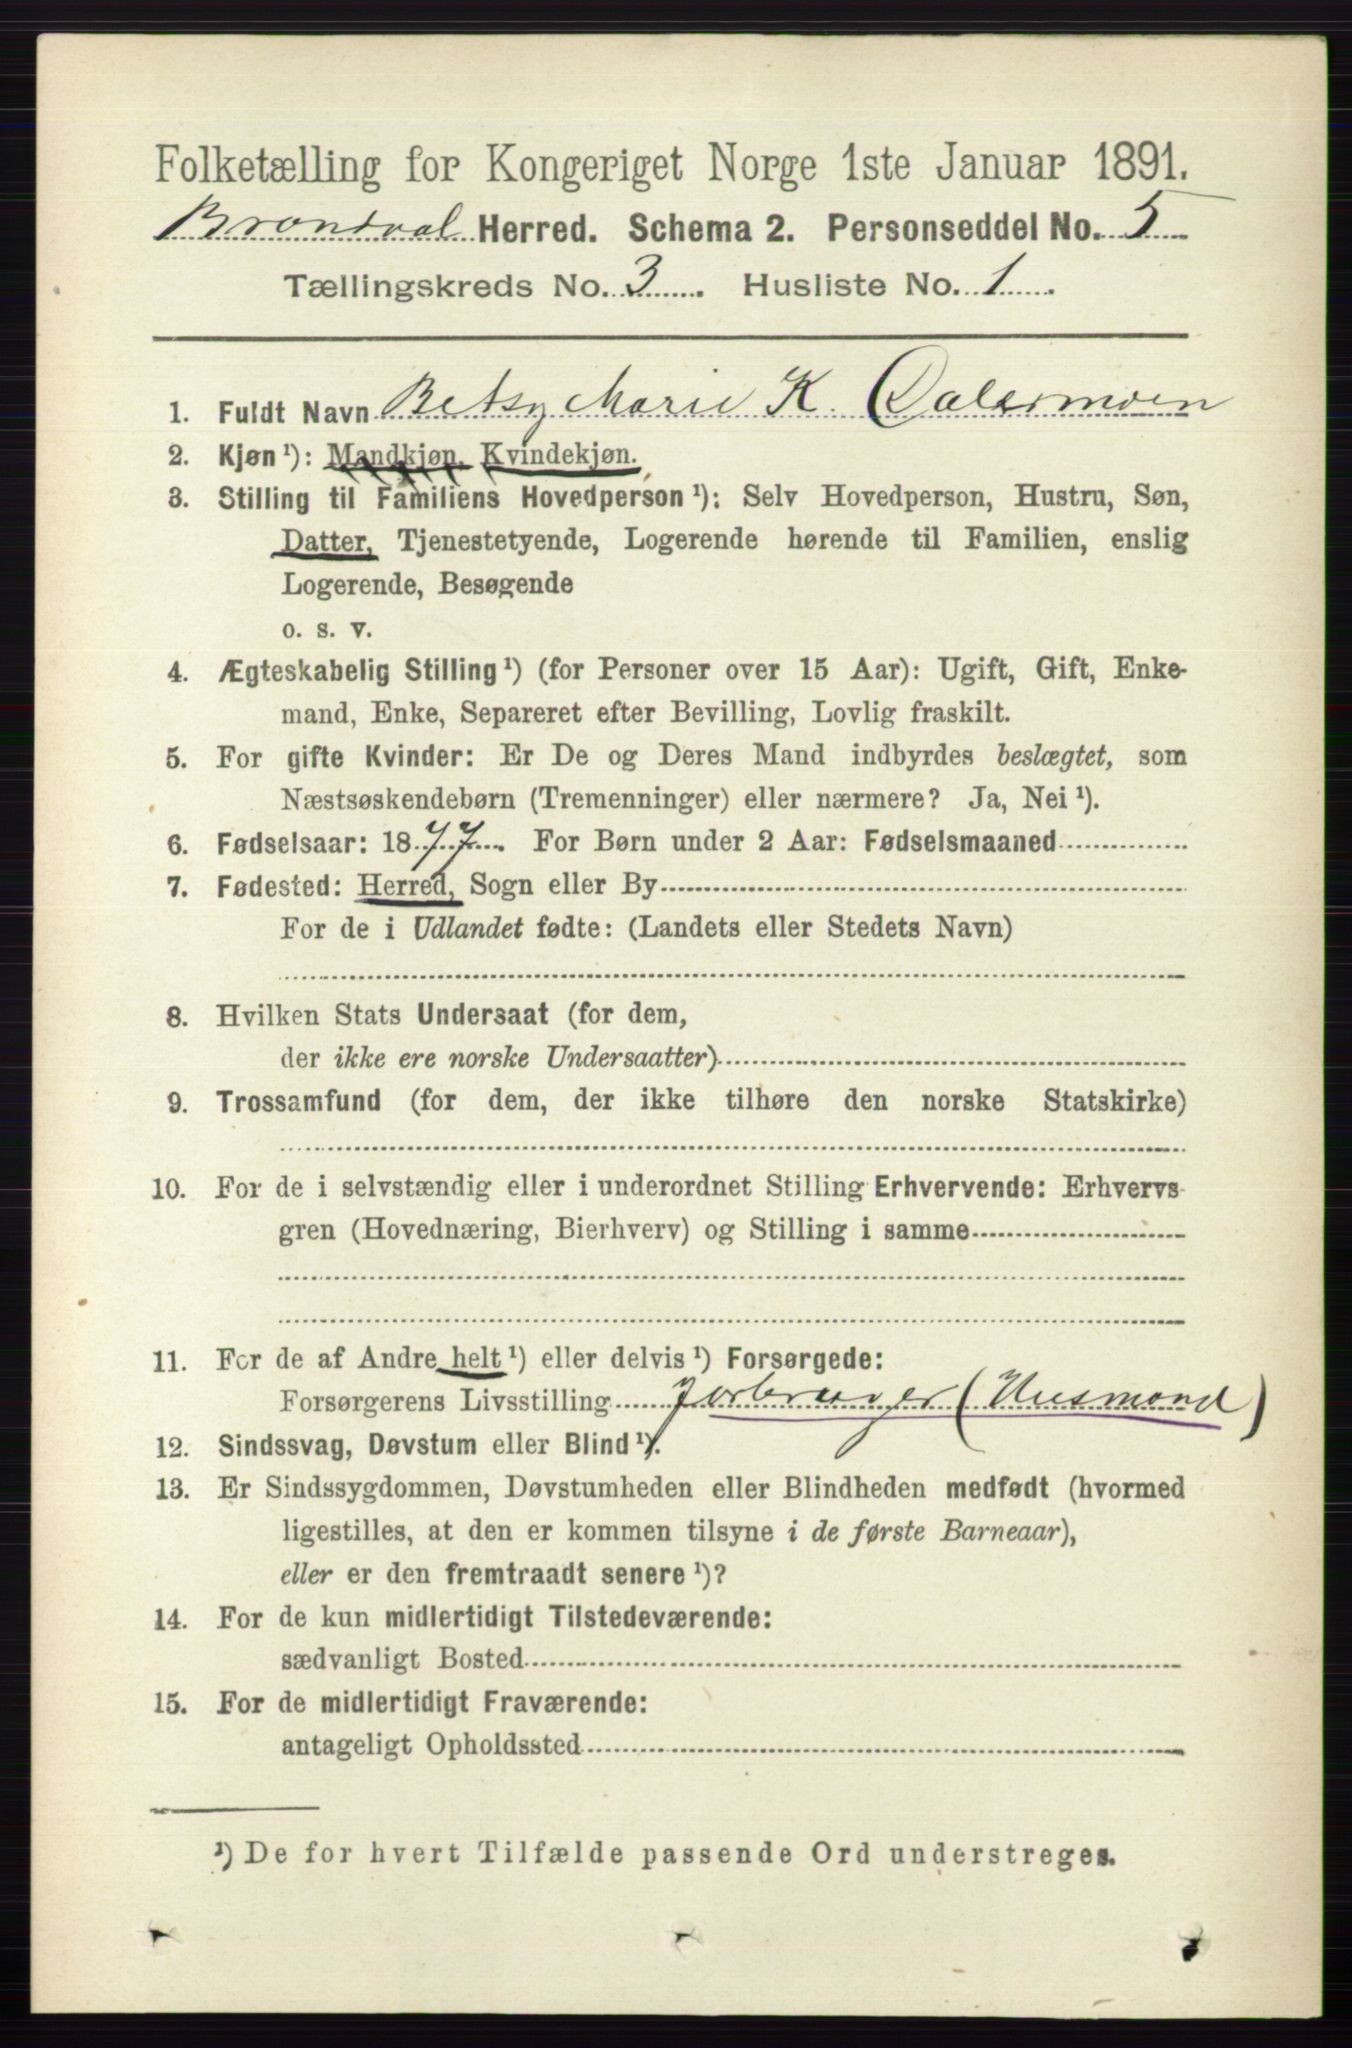 Folketælling for Kongeriget Norge 1ste Januar 1891.
Brandval Herred. Schema 2. Personseddel No. 5
Tællingskreds No. 3 Husliste No. 1
1. Fuldt Navn Betsy Marie K. Dalermoen
2. Kjøn ¹): Mandkjøn, Kvindekjøn.
3. Stilling til Familiens Hovedperson ¹): Selv Hovedperson, Hustru, Søn,
Datter, Tjenestetyende, Logerende hørende til Familien, enslig
Logerende, Besøgende
o. s. v.
4. Ægteskabelig Stilling ¹) (for Personer over 15 Aar): Ugift, Gift, Enke-
mand, Enke, Separeret efter Bevilling, Lovlig fraskilt.
5. For gifte Kvinder: Er De og Deres Mand indbyrdes beslægtet, som
Næstsøskendebørn (Tremenninger) eller nærmere? Ja, Nei ¹).
6. Fødselsaar: 1877. For Børn under 2 Aar: Fødselsmaaned
7. Fødested: Herred, Sogn eller By
For de i Udlandet fødte: (Landets eller Stedets Navn)
8. Hvilken Stats Undersaat (for dem,
der ikke ere norske Undersaatter)
9. Trossamfund (for dem, der ikke tilhøre den norske Statskirke)
10. For de i selvstændig eller i underordnet Stilling Erhvervende: Erhvervs-
gren (Hovednæring, Bierhverv) og Stilling i samme
11. For de af Andre helt ¹) eller delvis ¹) Forsørgede:
Forsørgerens Livsstilling Jorbruger (Husmand)
12. Sindssvag, Døvstum eller Blind ¹).
13. Er Sindssygdommen, Døvstumheden eller Blindheden medfødt (hvormed
ligestilles, at den er kommen tilsyne i de første Barneaar),
eller er den fremtraadt senere ¹)?
14. For de kun midlertidigt Tilstedeværende:
sædvanligt Bosted
15. For de midlertidigt Fraværende:
antageligt Opholdssted
¹) De for hvert Tilfælde passende Ord understreges.